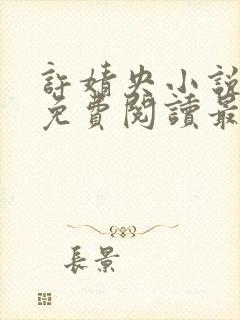 許婧央小說
免費閱讀最
長景